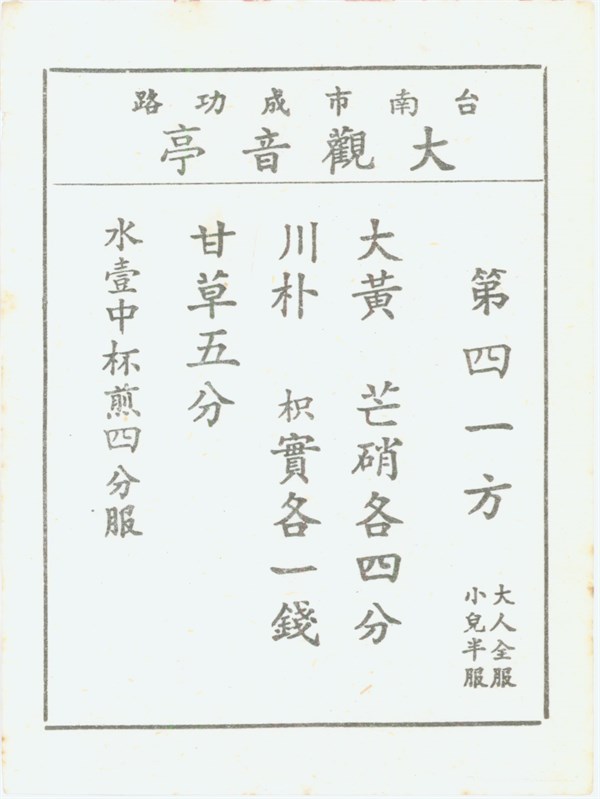 台南市成功路
大觀音亭
第四一方
大人全服
小兒半服
大黃 芒硝各四分
川朴 枳實各一錢
甘草五分
水壹中杯煎四分服